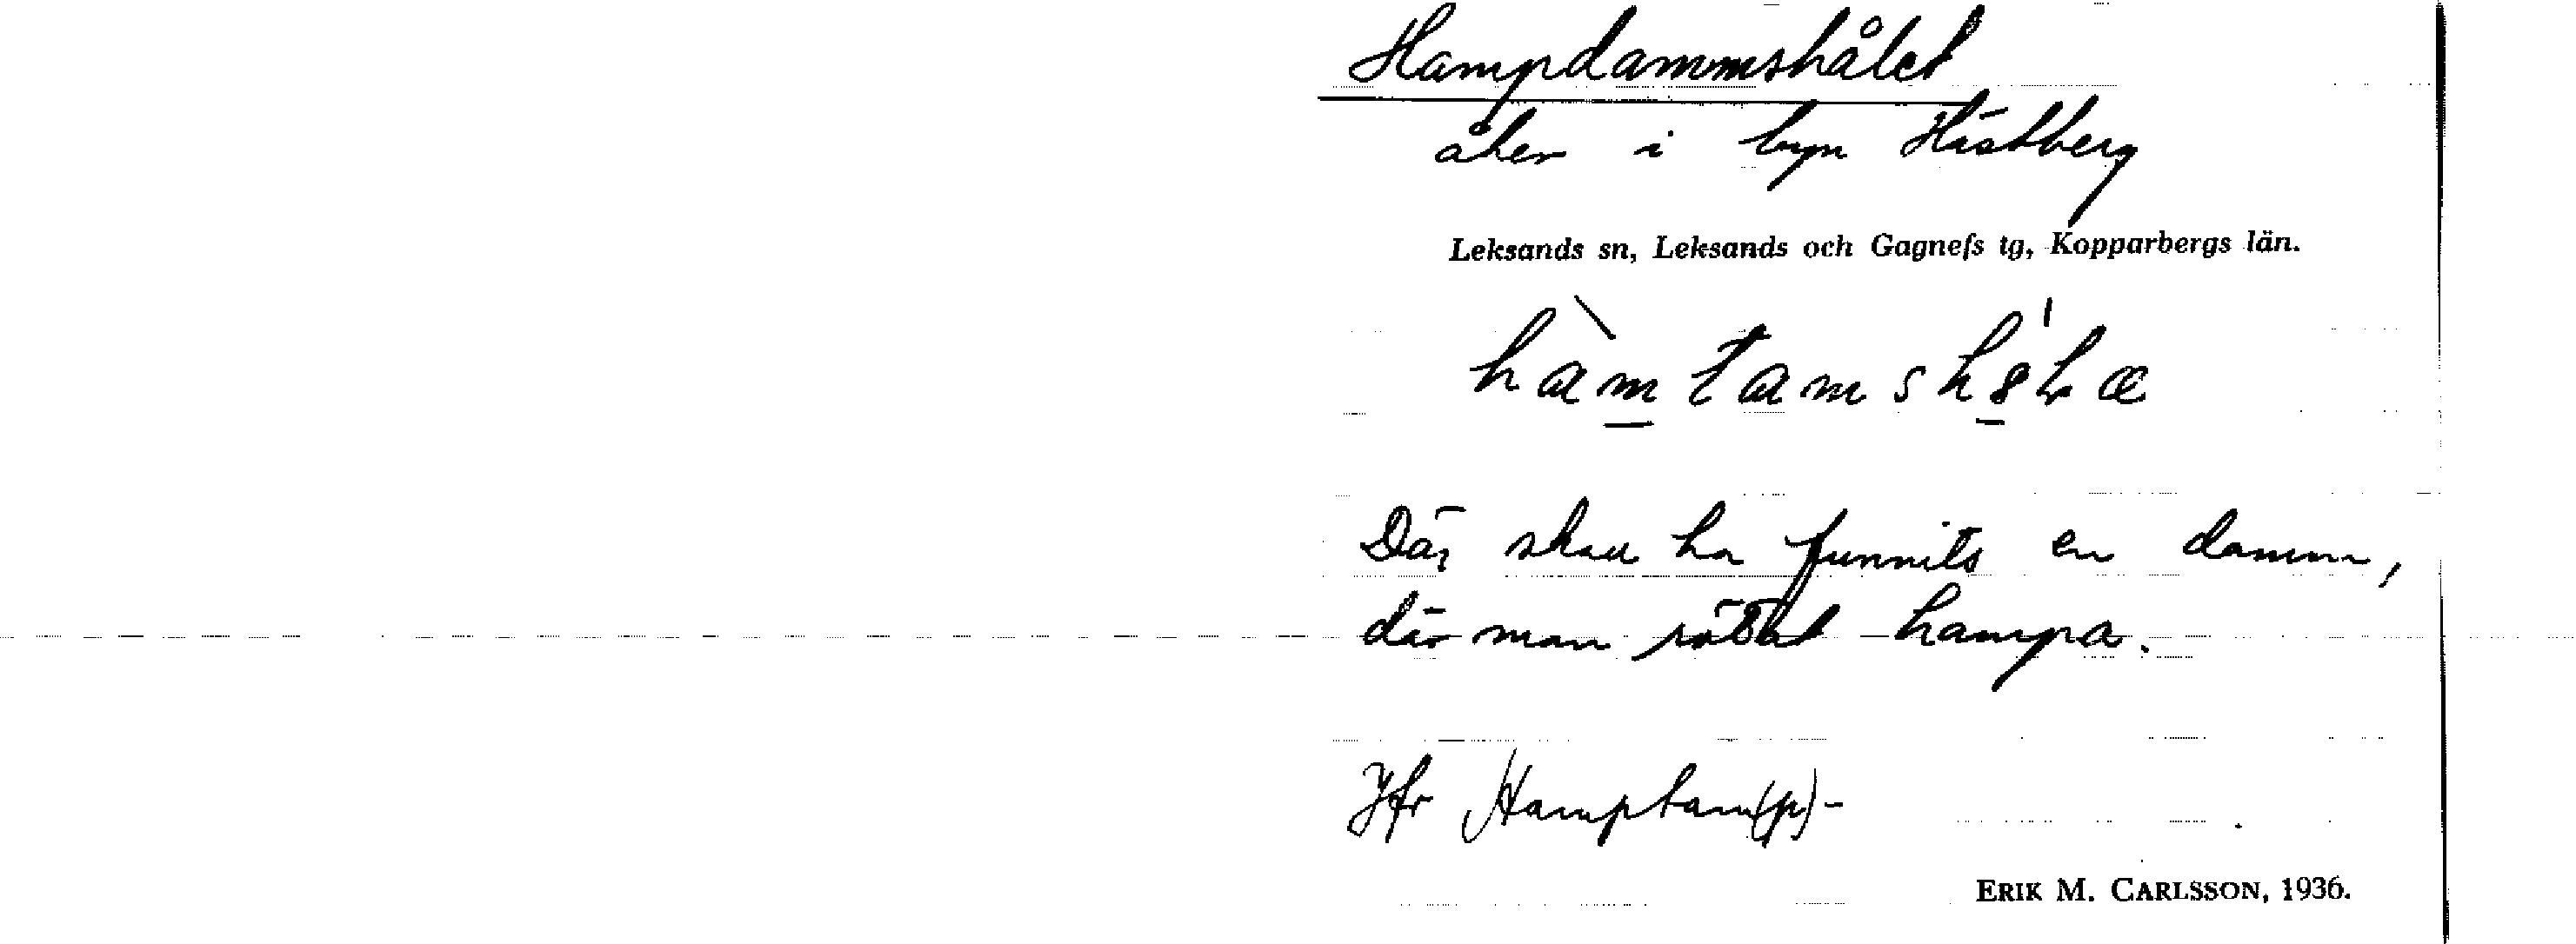 Hampdammshålet
åker i byn Hästberg
Leksands sn, Leksands och Gagnefs tg, Kopparbergs län.
Där skall ha funnits en damm,
där man rötat hampa.
Jfr Hamptam(p)-
ERIK M. CARLSSON, 1936.